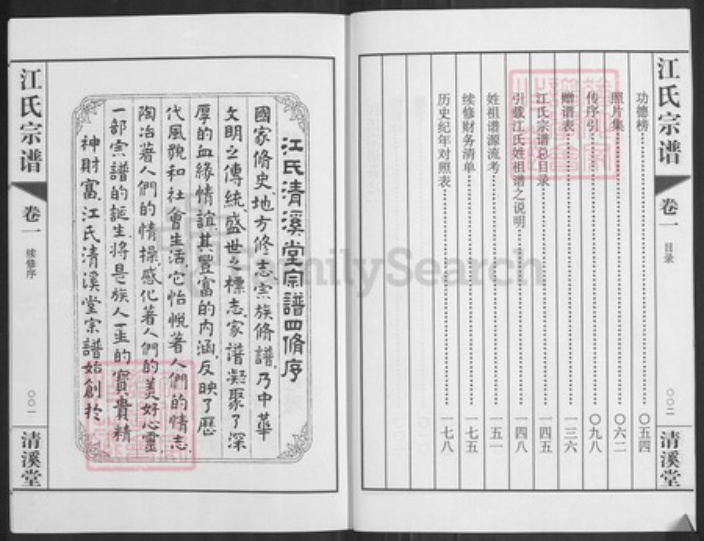 江氏宗谱
卷一
目录
〇〇二
清溪堂
功德榜 〇五四
照片集 〇六二
传序引 〇九八
赠谱表 一三六
江氏宗谱总目录 一四五
引载江氏姓祖谱之说明 一四八
姓祖谱源流考 一五一
续修财务清单 一七五
历史纪年对照表 一七八
江氏清溪堂宗譜四脩序
國家脩史,地方修志,宗族脩譜,乃中華
文明之傳統,盛世之標志,家谱凝聚了深
厚的血緣情誼,其豐富的内涵,反映了歷
代風貌和社會生活,它怡悦著人們的情志,
陶冶著人們的情操,感化著人們的美好心靈,
一部宗譜的誕生将是族人一生的寶貴精
神財富,江氏清溪堂宗譜始創於
江氏宗谱
卷一
续修序
〇〇一
清溪堂
FamilySearch